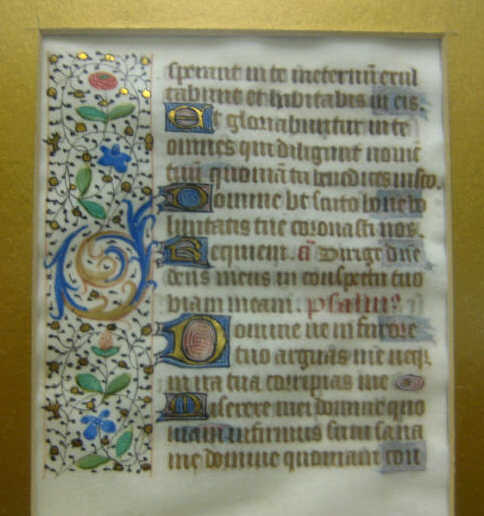 sperant in te in eternū exul
tabunt et habitabis in eis.
Et gloriabuntur in te
omnes qui diligunt nomē
tuū quoniā tu benedices iusto.
Domine ut scuto bone vo
luntatis tue coronasti nos.
Requiem. a᷒ Dirige dn̄e
deus meus in conspectu tuo
viam meam. psalmꝰ
Domine ne in furore
tuo arguas me neqꝫ
in ira tua corripias me
Miserere mei domine quo
niam infirmus sum sana
me domine quoniam con